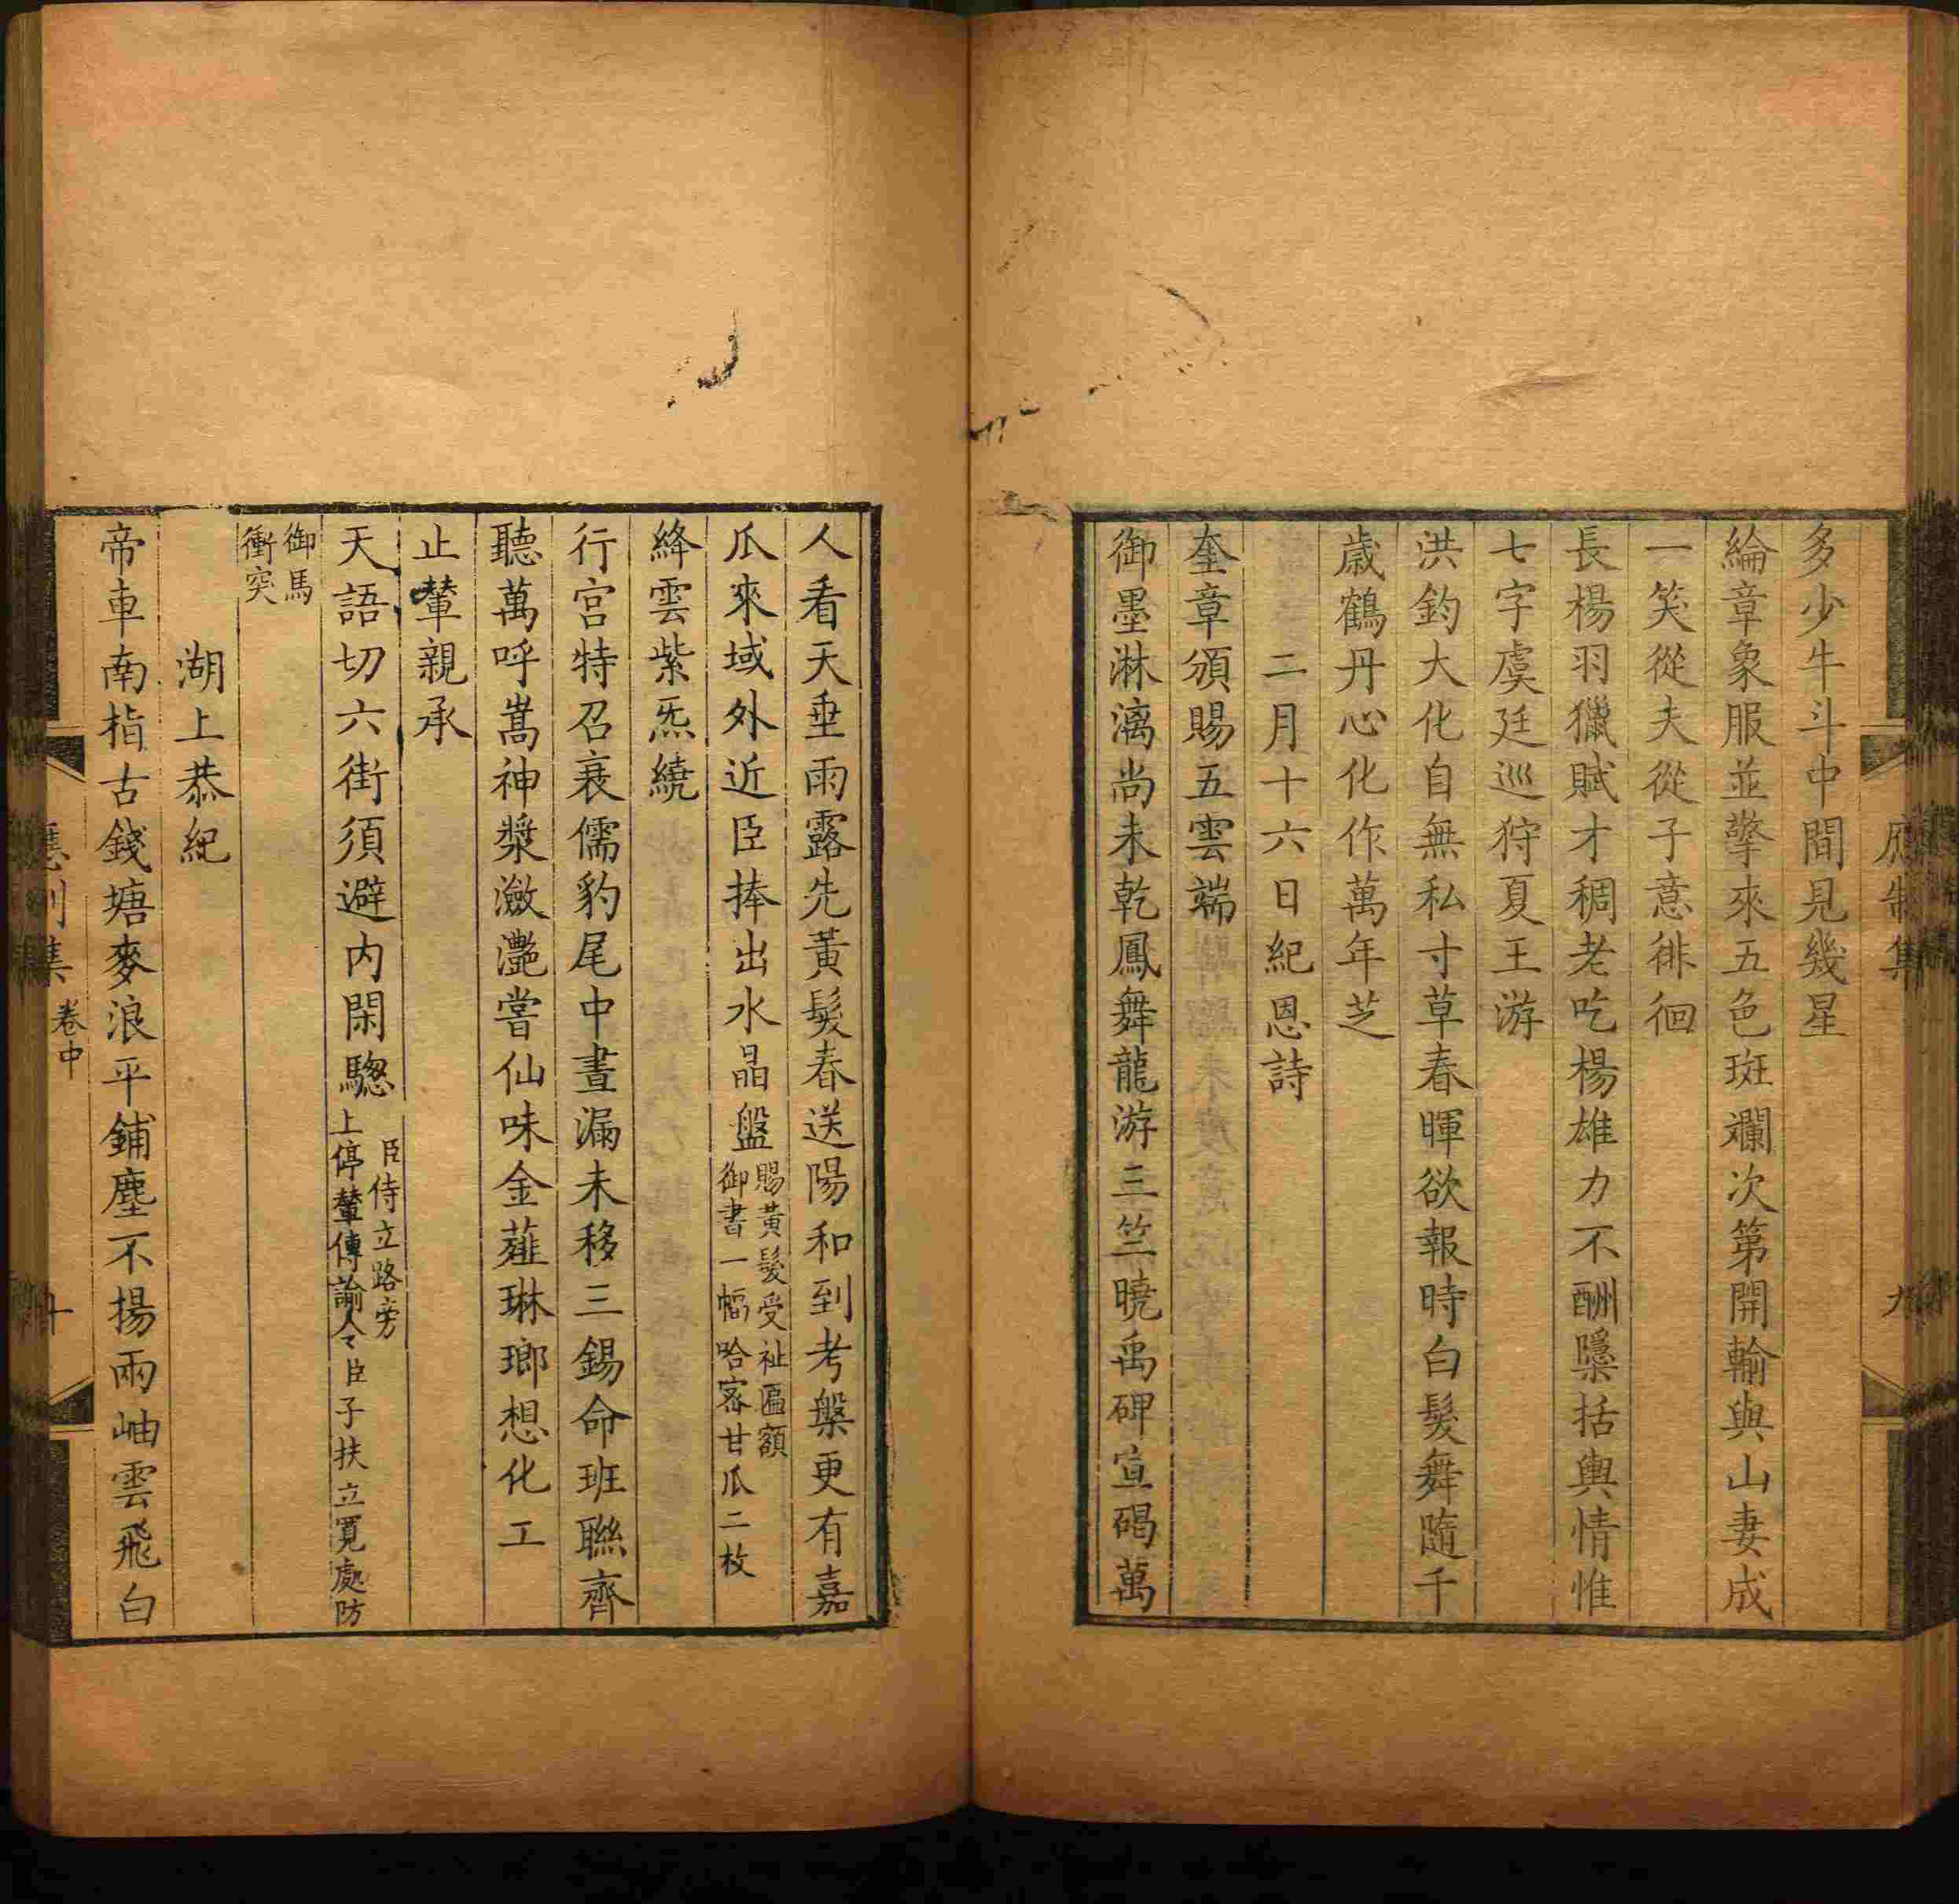 應制集
九
多少牛斗中間見幾星
綸章象服並擎來五色斑斕次第開輸與山妻成
一笑從夫從子意徘徊
長楊羽獵賦才稠老吃楊雄力不酬隱括輿情惟
七字虞廷巡狩夏王游
洪鈞大化自無私寸草春暉欲報時白髮舞隨千
歲鶴丹心化作萬年芝
二月十六日紀恩詩
奎章頒賜五雲端
御墨淋漓尚未乾鳳舞龍游三竺曉禹碑宣碣萬
人看天垂雨露先黃髮春送陽和到考槃更有嘉
瓜來域外近臣捧出水晶盤
賜黃髮受祉匾額
御書一幅哈密甘瓜二枚
絳雲紫炁繞
行宮特召衰儒豹尾中晝漏未移三錫命班聯齊
聽萬呼嵩神漿瀲灧嘗仙味金薤琳瑯想化工
止輦親承
天語切六街須避內閑驄
臣侍立路旁
上停輦傳諭令人臣子扶立寬處防
御馬
衝突
湖上恭紀
帝車南指古錢塘麥浪平鋪塵不揚兩岫雲飛白
應制集
卷中
十